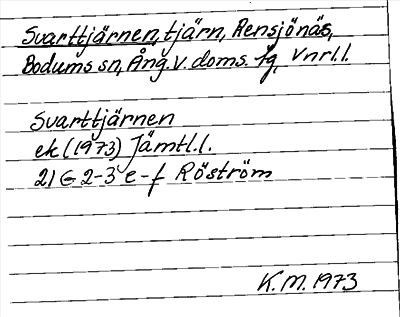 Svarttjärnen, tjärn, Rensjönäs,
Bodums sn, Ång.v.doms. fg, Vnrl.l.
Svarttjärnen
ek (1973) Jämtl.l.
21 G 2-3 e-f Röström
K.M. 1973